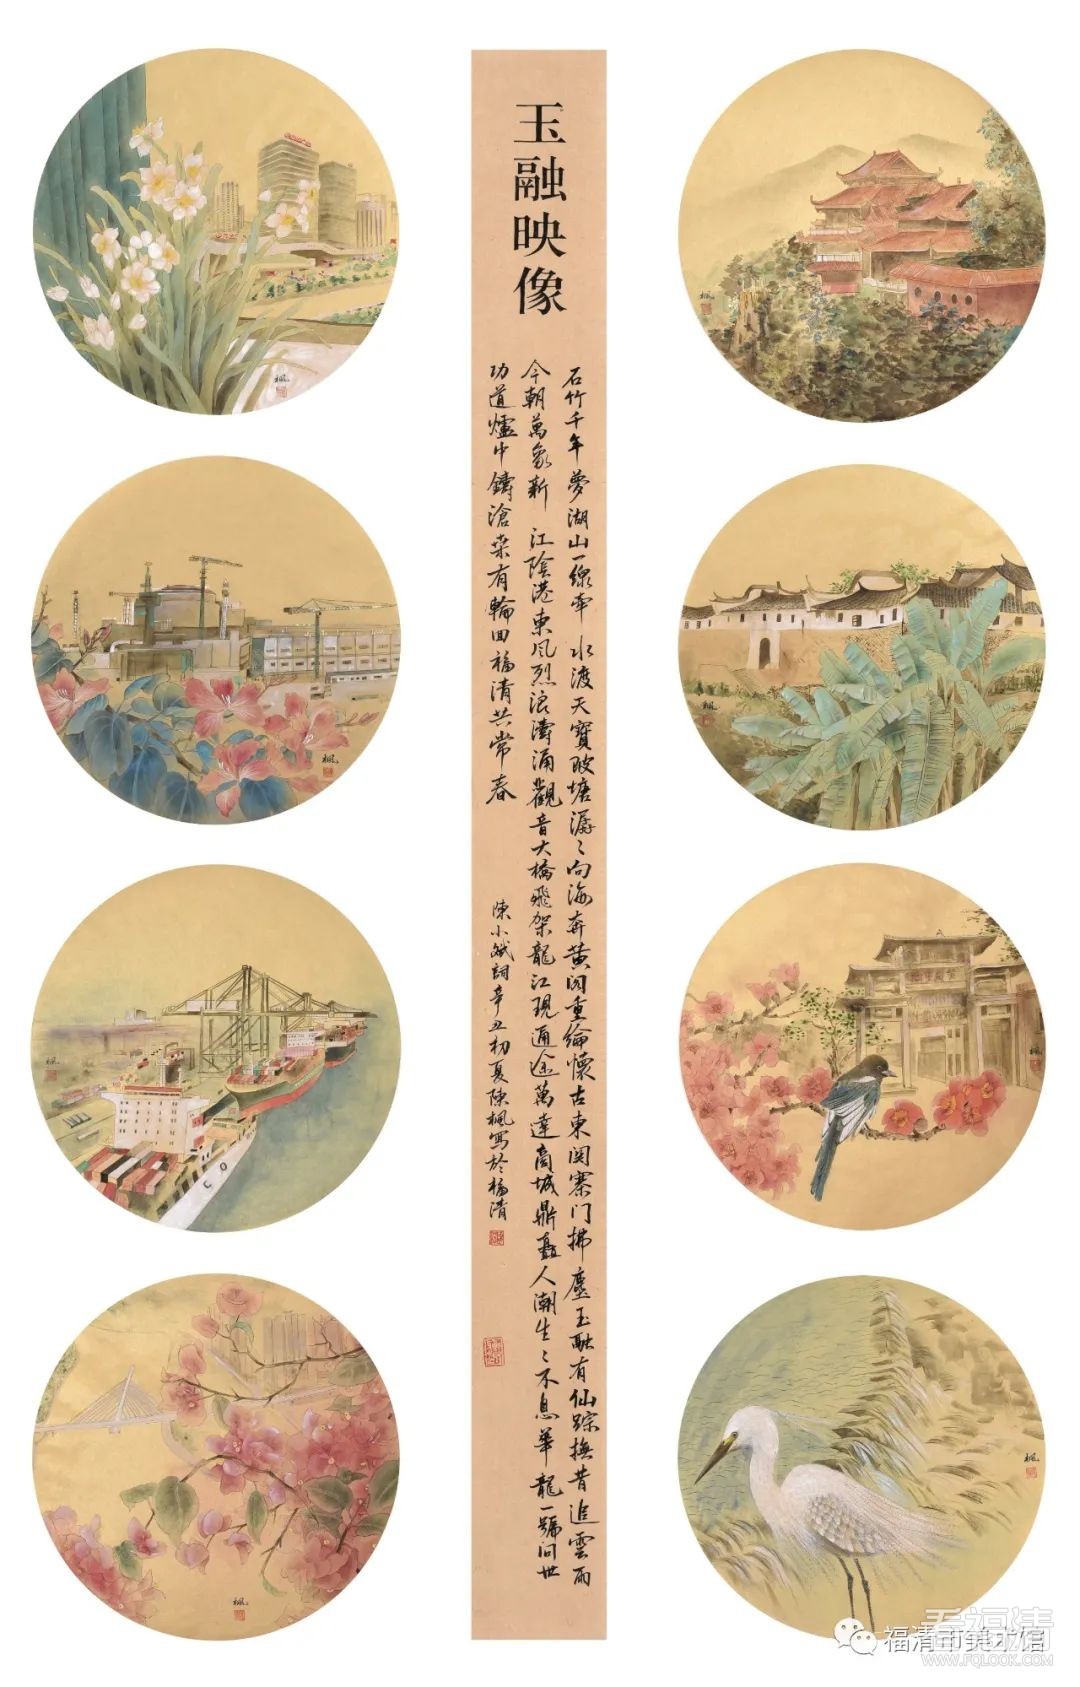 玉融映像
石竹千年夢湖山一線牽 水渡天寶陂塘潺〻向海奔黃閣重綸懷古東関寨門拂塵玉融有仙踪撫昔追雲雨
今朝萬象新 江陰港東風烈浪濤涌觀音大橋飛架龍江現通途萬達商城鼎矗人潮生〻不息華龍一號问世
功道爐中鑄滄桑有輪回福清共常春
陳小斌詞辛丑初夏陳楓寫於福清
楓
楓
楓
楓
楓
楓
楓
楓
福清市美术馆
看福清
WWW.FQLOOK.COM